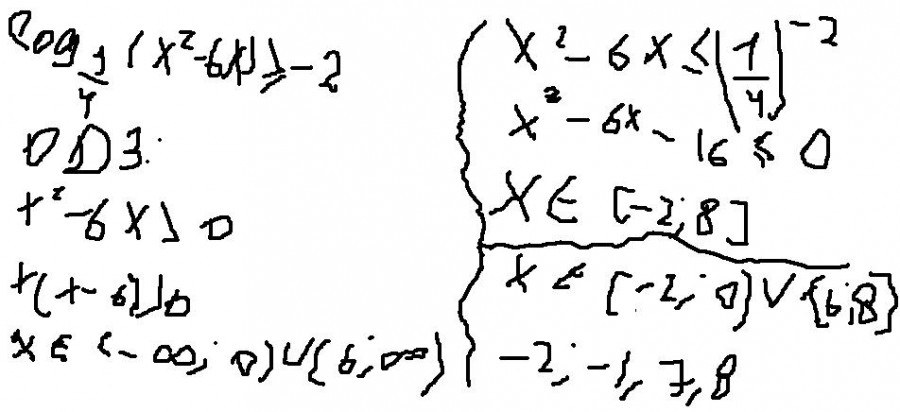 log_{1/4} (x² - 6x) ≥ -2
ОДЗ:
x² - 6x > 0
x(x - 6) > 0
x ∈ (-∞; 0) ∪ (6; ∞)
x² - 6x ≤ (1/4)^{-2}
x² - 6x - 16 ≤ 0
x ∈ [-2; 8]
x ∈ [-2; 0) ∪ (6; 8]
-2; -1; 7; 8